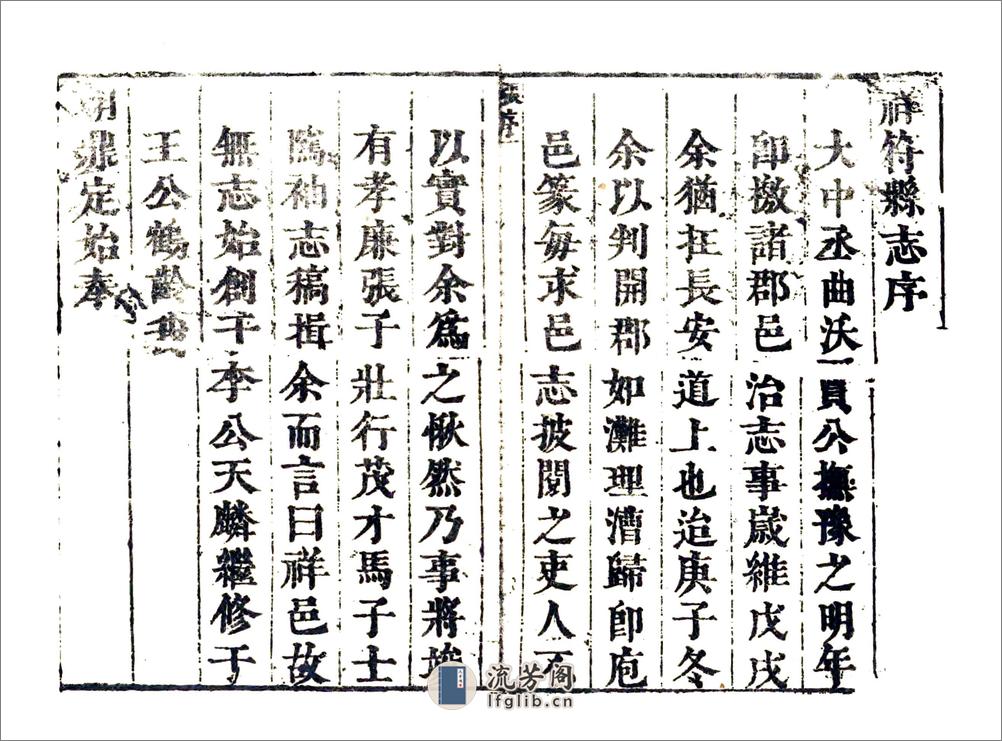 祥符縣志序
大中丞曲沃賈公撫豫之明年
卽檄諸郡邑治志事歲維戊戌
余猶在長安道上也迨庚子冬
余以判開郡如灘理漕歸卽庖
邑篆每求邑志披閱之吏人不
以實對余爲之愀然乃事將竣
有孝廉張子壯行茂才馬子士
隲袖志稿揖余而言曰祥邑故
無志始創于李公天麟繼修于
王公鶴齡我
明鼎定始奉
流芳阁
lfglib.cn